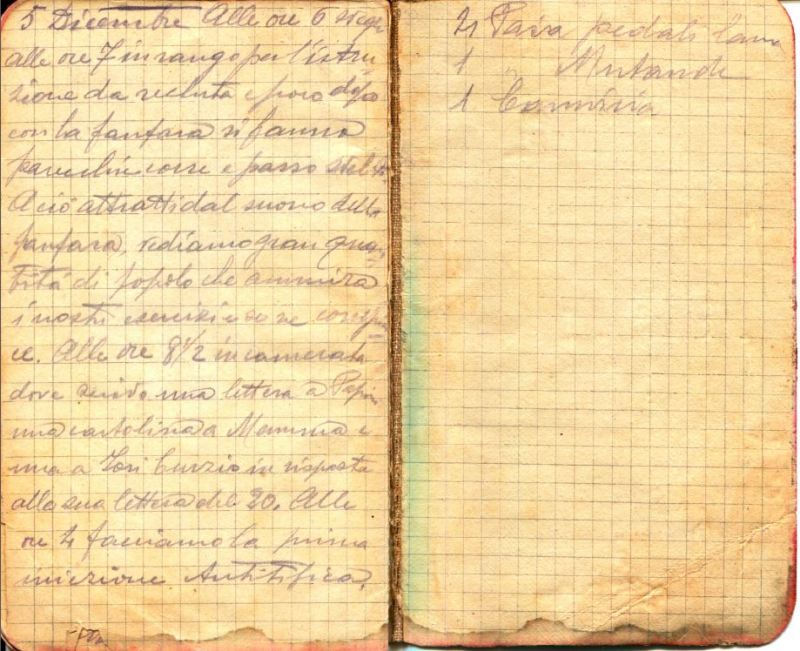 5 Dicembre Alle ore 6 sveglia
alle ore 7 in rango per l'istru
zione da recluta e poco dopo
con la fanfara si fanno
parecchie corse e passo
A ciò attratti dal suono della
fanfara, vediamo gran quan
tità di popolo che ammira
i nostri esercizi e se ne
ce. Alle ore 8 1/2 in camerata
dove scrivo una lettera a
una cartolina a Mamma e
una a Curzio in risposta
alla sua lettera del 20. Alle
ore 4 facciamo la prima
iniezione Antitifica.
4 Paia pedali lana
1 " Mutande
1 Camicia